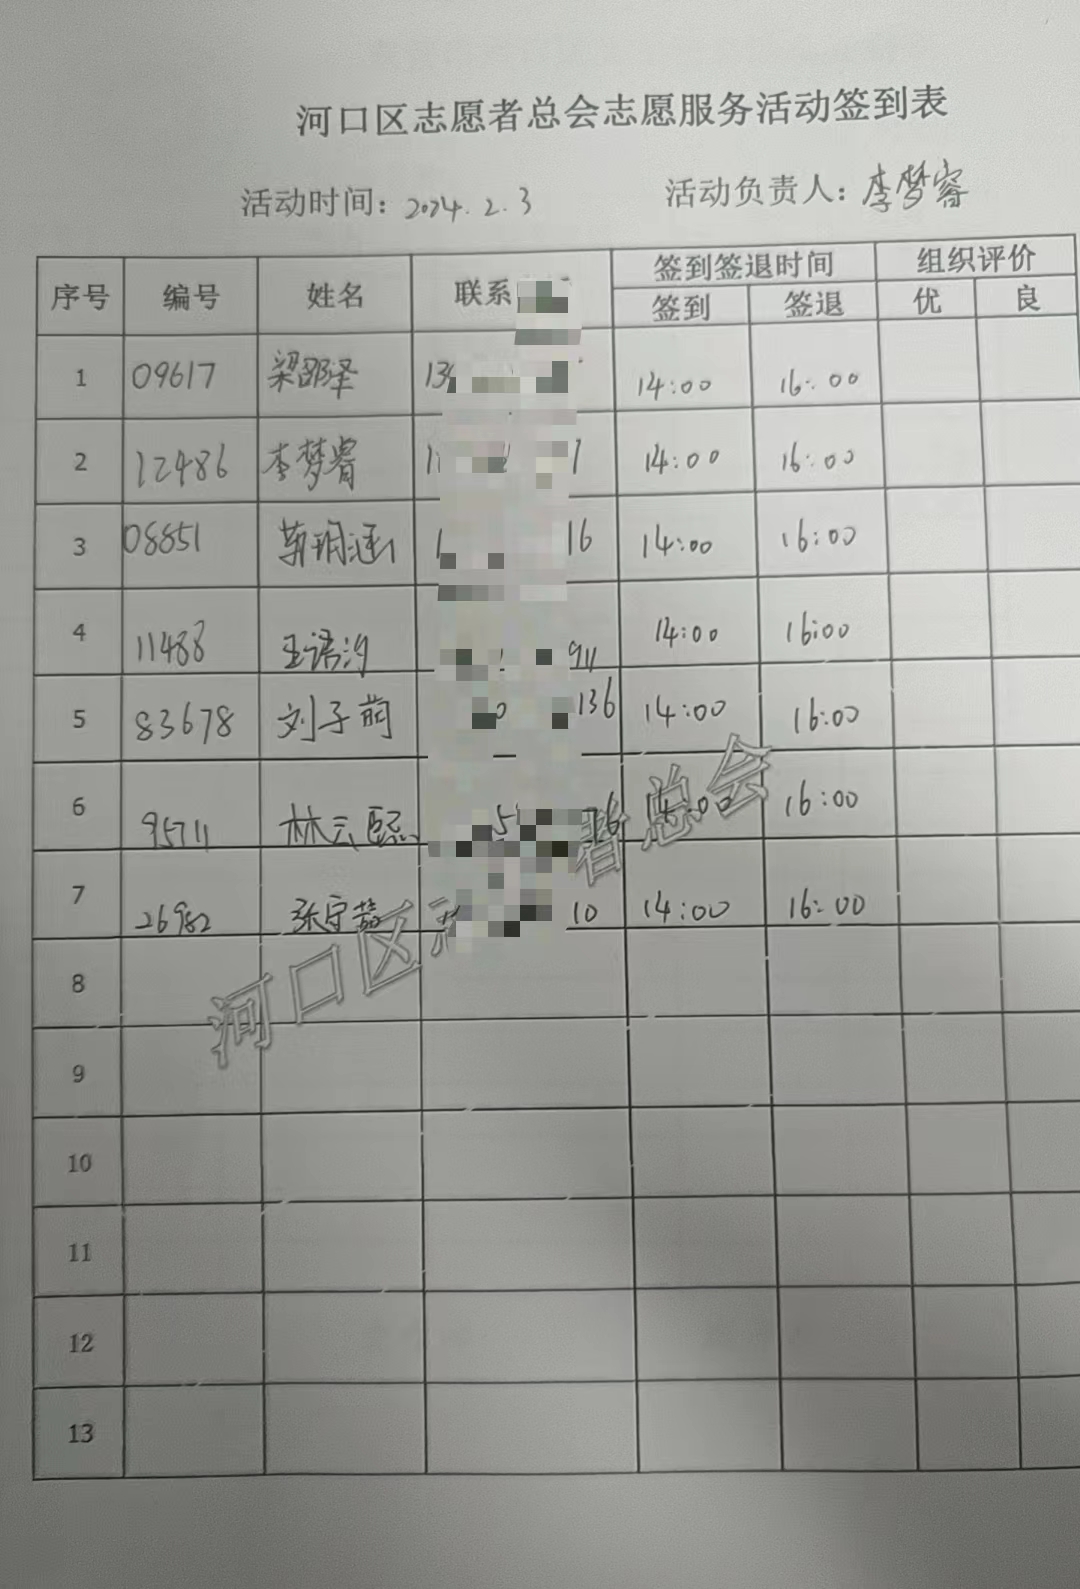 河口区志愿者总会志愿服务活动签到表
活动时间：2024.2.3 活动负责人：李梦睿
序号 编号 姓名 联系 签到签退时间 组织评价
签到 签退 优 良
1 09617 梁邵泽 13 14:00 16:00
2 12486 李梦睿 1 1 14:00 16:00
3 08851 1 16 14:00 16:00
4 11488 王语汐 911 14:00 16:00
5 83678 刘子萌 0 136 14:00 16:00
6 95711 林云熙 5 6 14:00 16:00
7 26982 张宁 10 14:00 16:00
8
9
10
11
12
13
河口区 者总会